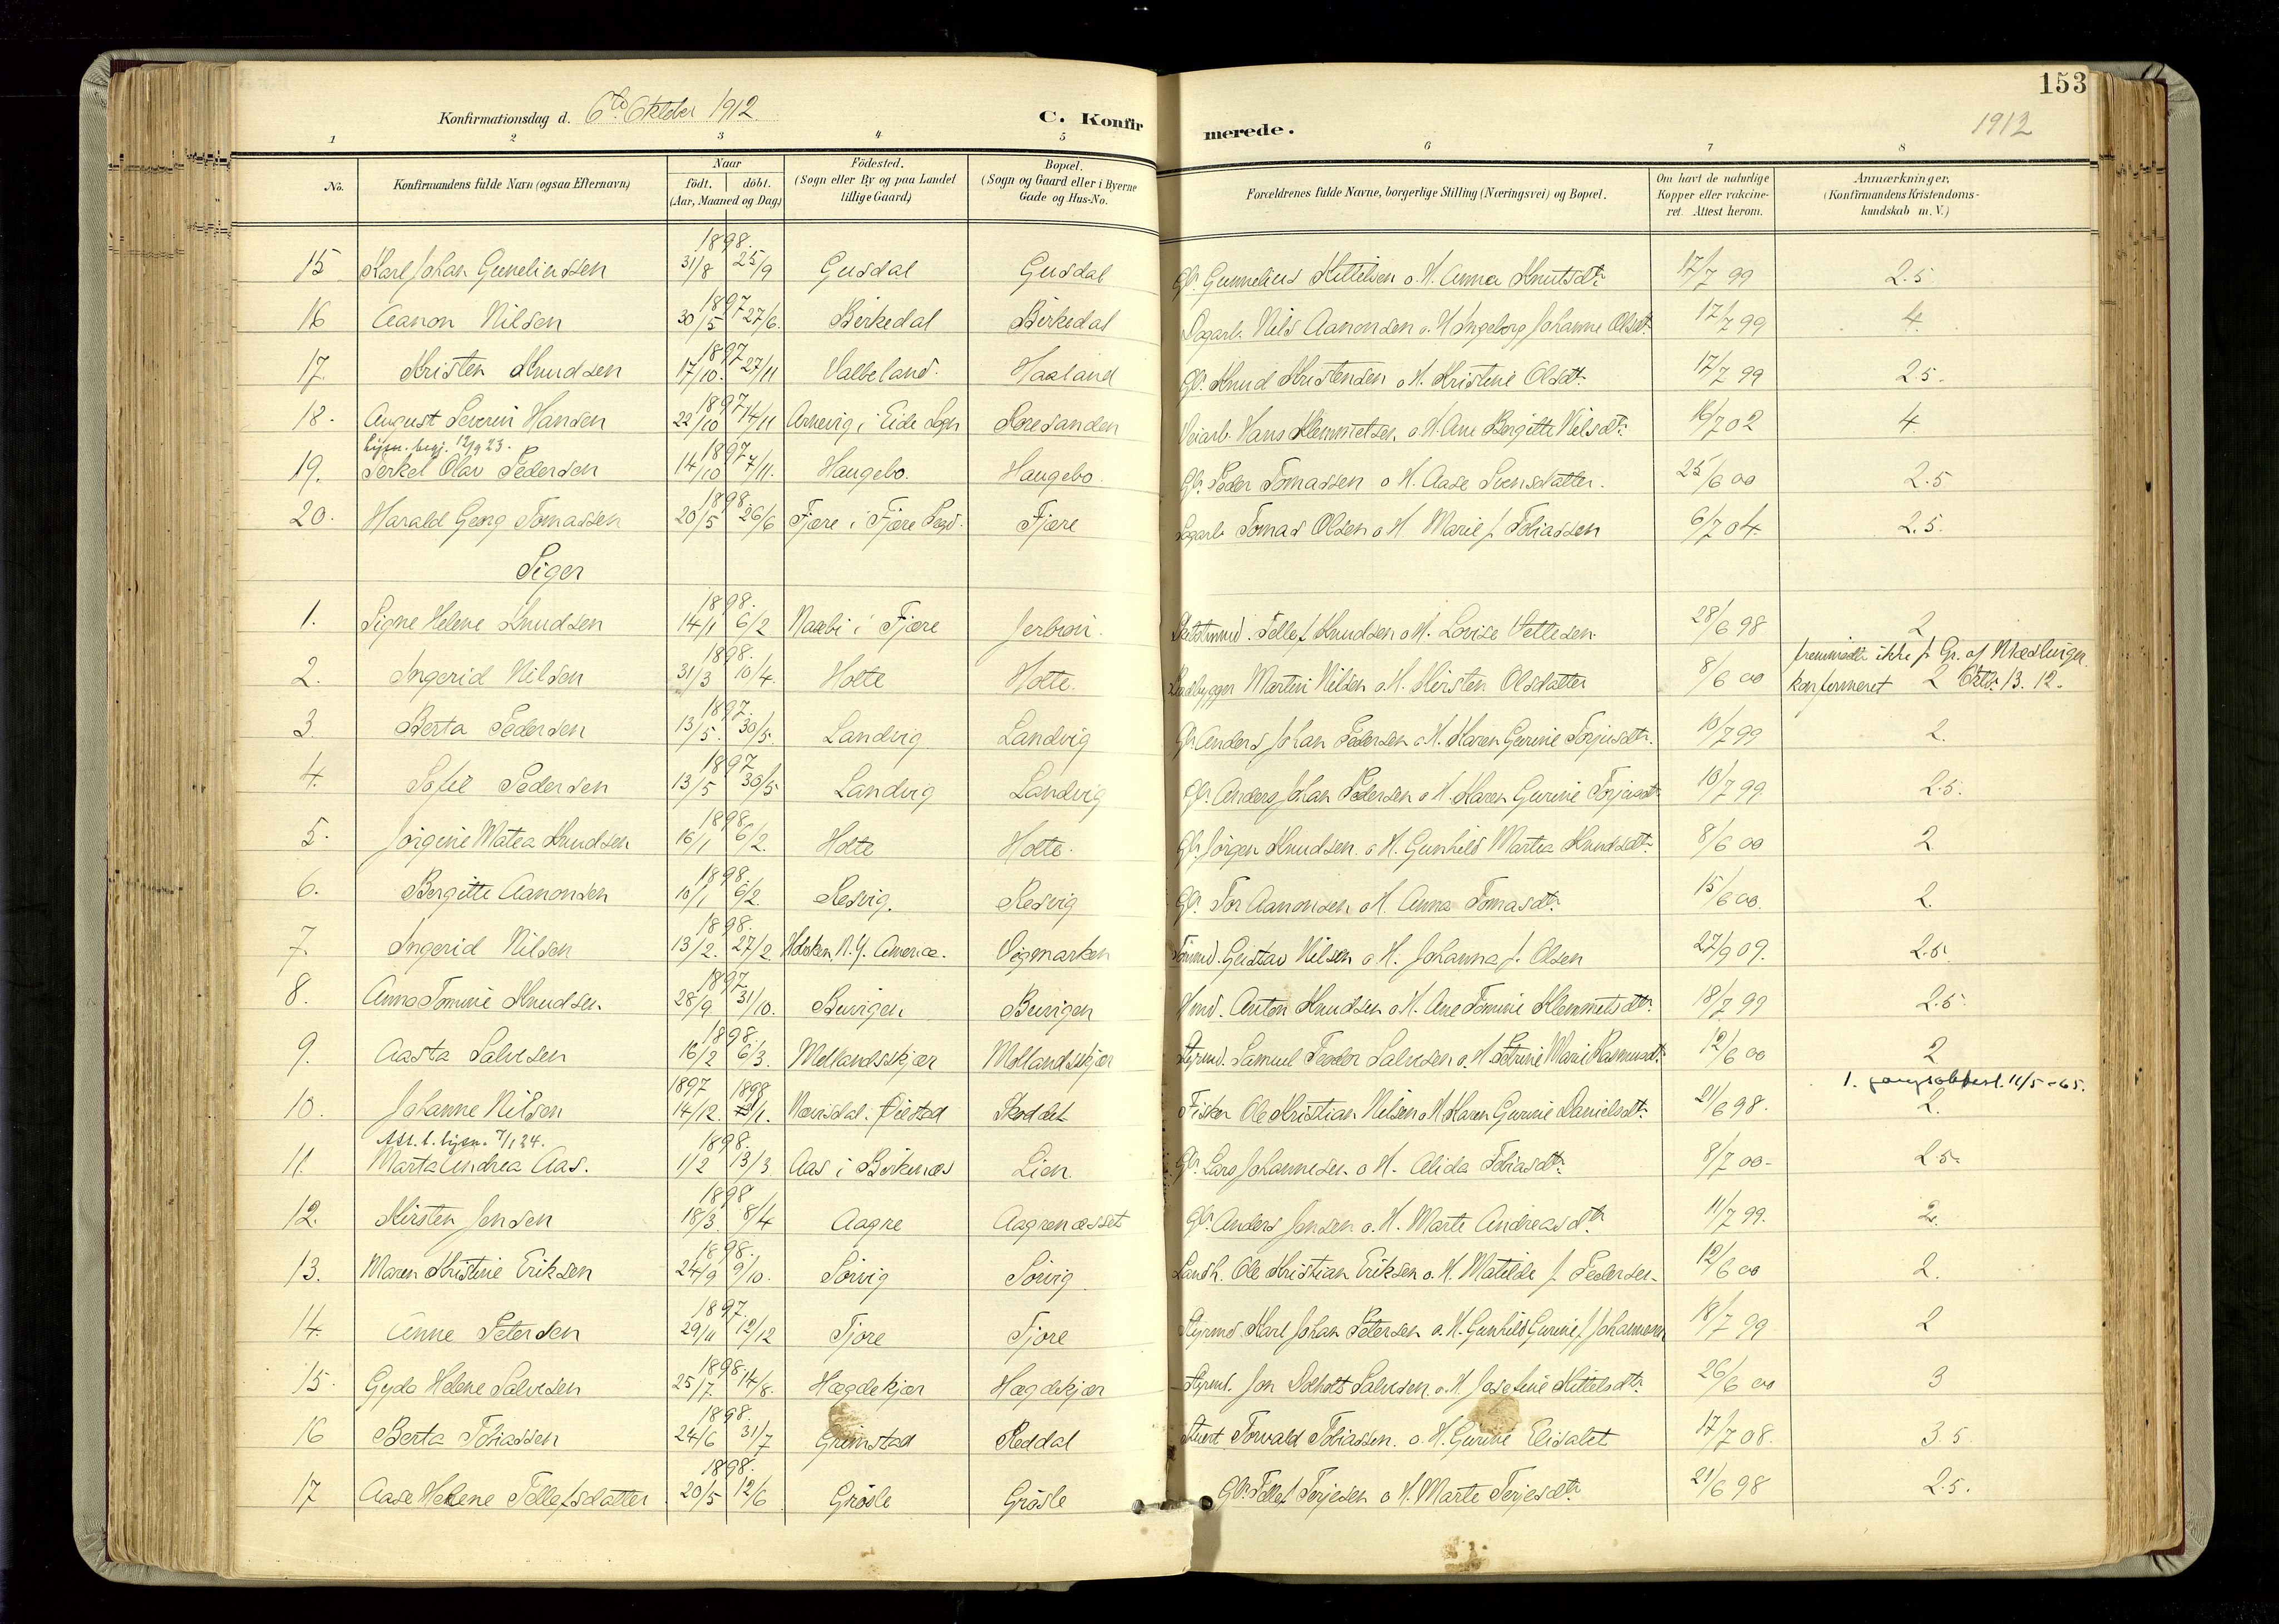 153
Konfirmationsdag d. 6te Oktober 1912.
C. Konfirmerede.
1912
1 2 3 4 5 6 7 8
No.
Konfirmandens fulde Navn (ogsaa Efternavn)
Naar
födt. döbt.
(Aar, Maaned og Dag)
Födested.
(Sogn eller By og paa Landet
tillige Gaard)
Bopæl.
(Sogn og Gaard eller i Byerne
Gade og Hus-No.
Forældrenes fulde Navne, borgerlige Stilling (Næringsvei) og Bopæl.
Om havt de naturlige
Kopper eller vakcine-
ret. Attest herom.
Anmærkninger,
(Konfirmandens Kristendoms-
kundskab m. V.)
1898.
15 Karl Johan Guneliussen 31/8 25/9 Gusdal Gusdal Gbr. Gunnelius Kittelsen o. H. Anna Knutsdtr. 17/7 99 2.5
1897
16 Aanon Nilsen 30/5 27/6. Birkedal Birkedal Dagarb. Nils Aanonsen o. H. Ingeborg Johanne Olsdt. 17/7 99 4.
1897
17. Kristen Knudsen 17/10. 27/11 Valbeland. Haaland Gbr. Knud Kristensen o H. Kristine Olsdtr. 17/7 99 2.5.
1897
18. August Severin Hansen 22/10 14/11 i Eide Sogn Roresanden Veiarb. Hans Klemmetsen o. H. Ane Bergitte Nilsdtr. 16/7 02 4.
12/9 23.
1897
19. Terkel Olav Pedersen 14/10 7/11. Haugebo. Haugebo. Gbr. Peder Tomassen o H. Aase Svensdatter. 25/6 00 2.5
1898.
20. Harald Georg Tomassen 20/5 26/6 Fjære i Fjære Sogn. Fjære Dagarb. Tomas Olsen o H. Marie f. Tobiassen 6/7 04. 2.5.
Piger
1898.
1. Signe Helene Knudsen 14/1 6/2 Naxbi i Fjære Knudsen o H. Lovise Vetlesen. 28/6 98 2
fremmødte ikke f Gr. af Mæslinger.
1898.
2. Ingerid Nilsen 31/3 10/4. Holte Holte. Martin Nilsen o. H. Kirsten Olsdatter 8/6 00 konfirmeret 2 Oktbr. 13. 12.
1897.
3. Berta Pedersen 13/5. 30/5. Landvig Landvig Gbr. Anders Johan Pedersen o H. Karen Gurine Torjusdtr. 10/7 99 2.
1897
4. Sofie Pedersen 13/5 30/5 Landvig Landvig Gbr. Anders Johan Pedersen o H. Karen Gurine Torjusdtr. 10/7 99. 2.5.
1898.
5. Jörgine Matea Knudsen 16/1 6/2. Holte Holte. Gbr. Jörgen Knudsen. o H. Gunhild Martea Knudsdtr. 8/6 00 2
1898.
6. Bergitte Aanonsen 10/1 6/2. Resvig. Resvig Gbr. Tor Aanonsen o H. Anna Tomasdtr. 15/6 00. 2.
1898.
7. Ingerid Nilsen 13/2. 27/2. Hoboken N. Y. America. Vigmarken Tömmd. Gustav Nilsen o H. Johanna f. Olsen 27/9 09. 2.5.
1897
8. Anna Tomine Knudsen. 28/9 31/10. Buvigen Buvigen Anton Knudsen o H. Ane Tomine Klemmetsdtr. 18/7 99 2.5.
1898.
9. Aasta Salvesen 16/2 6/3. Mollandsskjær Mollandsskjær Styrmd. Samuel Peder Salvesen o. H. Petrine Marie Rasmusdt. 12/6 00 2
1. 11/5-65.
1897 1898
10. Johanne Nilsen 14/12. 1. Næsdal. Öiestad Skoddet Fisker Ole Kristian Nilsen o H. Karen Gurine Danielsdtr. 21/6 98. 2.
Att. 7/1 24.
1898.
11. Marta Andrea Aas. 1/2 13/3 Aas i Birkenæs Lien. Gbr. Lars Johannesen o H. Alida Tobiasdtr. 8/7 00- 2.5-
1898
12. Kirsten Jensen 18/3. 8/4 Aagre Aagrenæsset Gbr. Anders Jensen o. H. Marte Andreasdtr. 11/7 99. 2.
1898.
13. Maren Kristine Eriksen 24/9 9/10. Sörvig Sörvig Landh. Ole Kristian Eriksen o. H. Matilde f. Pedersen- 12/6 00 2.
1897.
14. Anne Petersen 29/11 12/12 Tjore Tjore Styrmd. Karl Johan Petersen o. H. Gunhild Gurine f. Johannesen 18/7 99 2
1898.
15. Gyda Helene Salvesen 25/7. 14/8. Hægdekjær Hægdekjær Styrmd. Jon Salvesen. o. H. Josefine Kittelsdtr. 26/6 00 3
1898.
16 Berta Tobiassen 24/6 31/7 Grimstad Reddal Torvald Tobiassen. o. H. Gurine Elisabet 17/7 08. 3.5.
1898.
17 Aase Helene Tellefsdatter 20/5 12/6 Grösle Grösle Gbr. Tellef Terjesen o H. Marte Terjesdtr. 21/6 98 2.5.